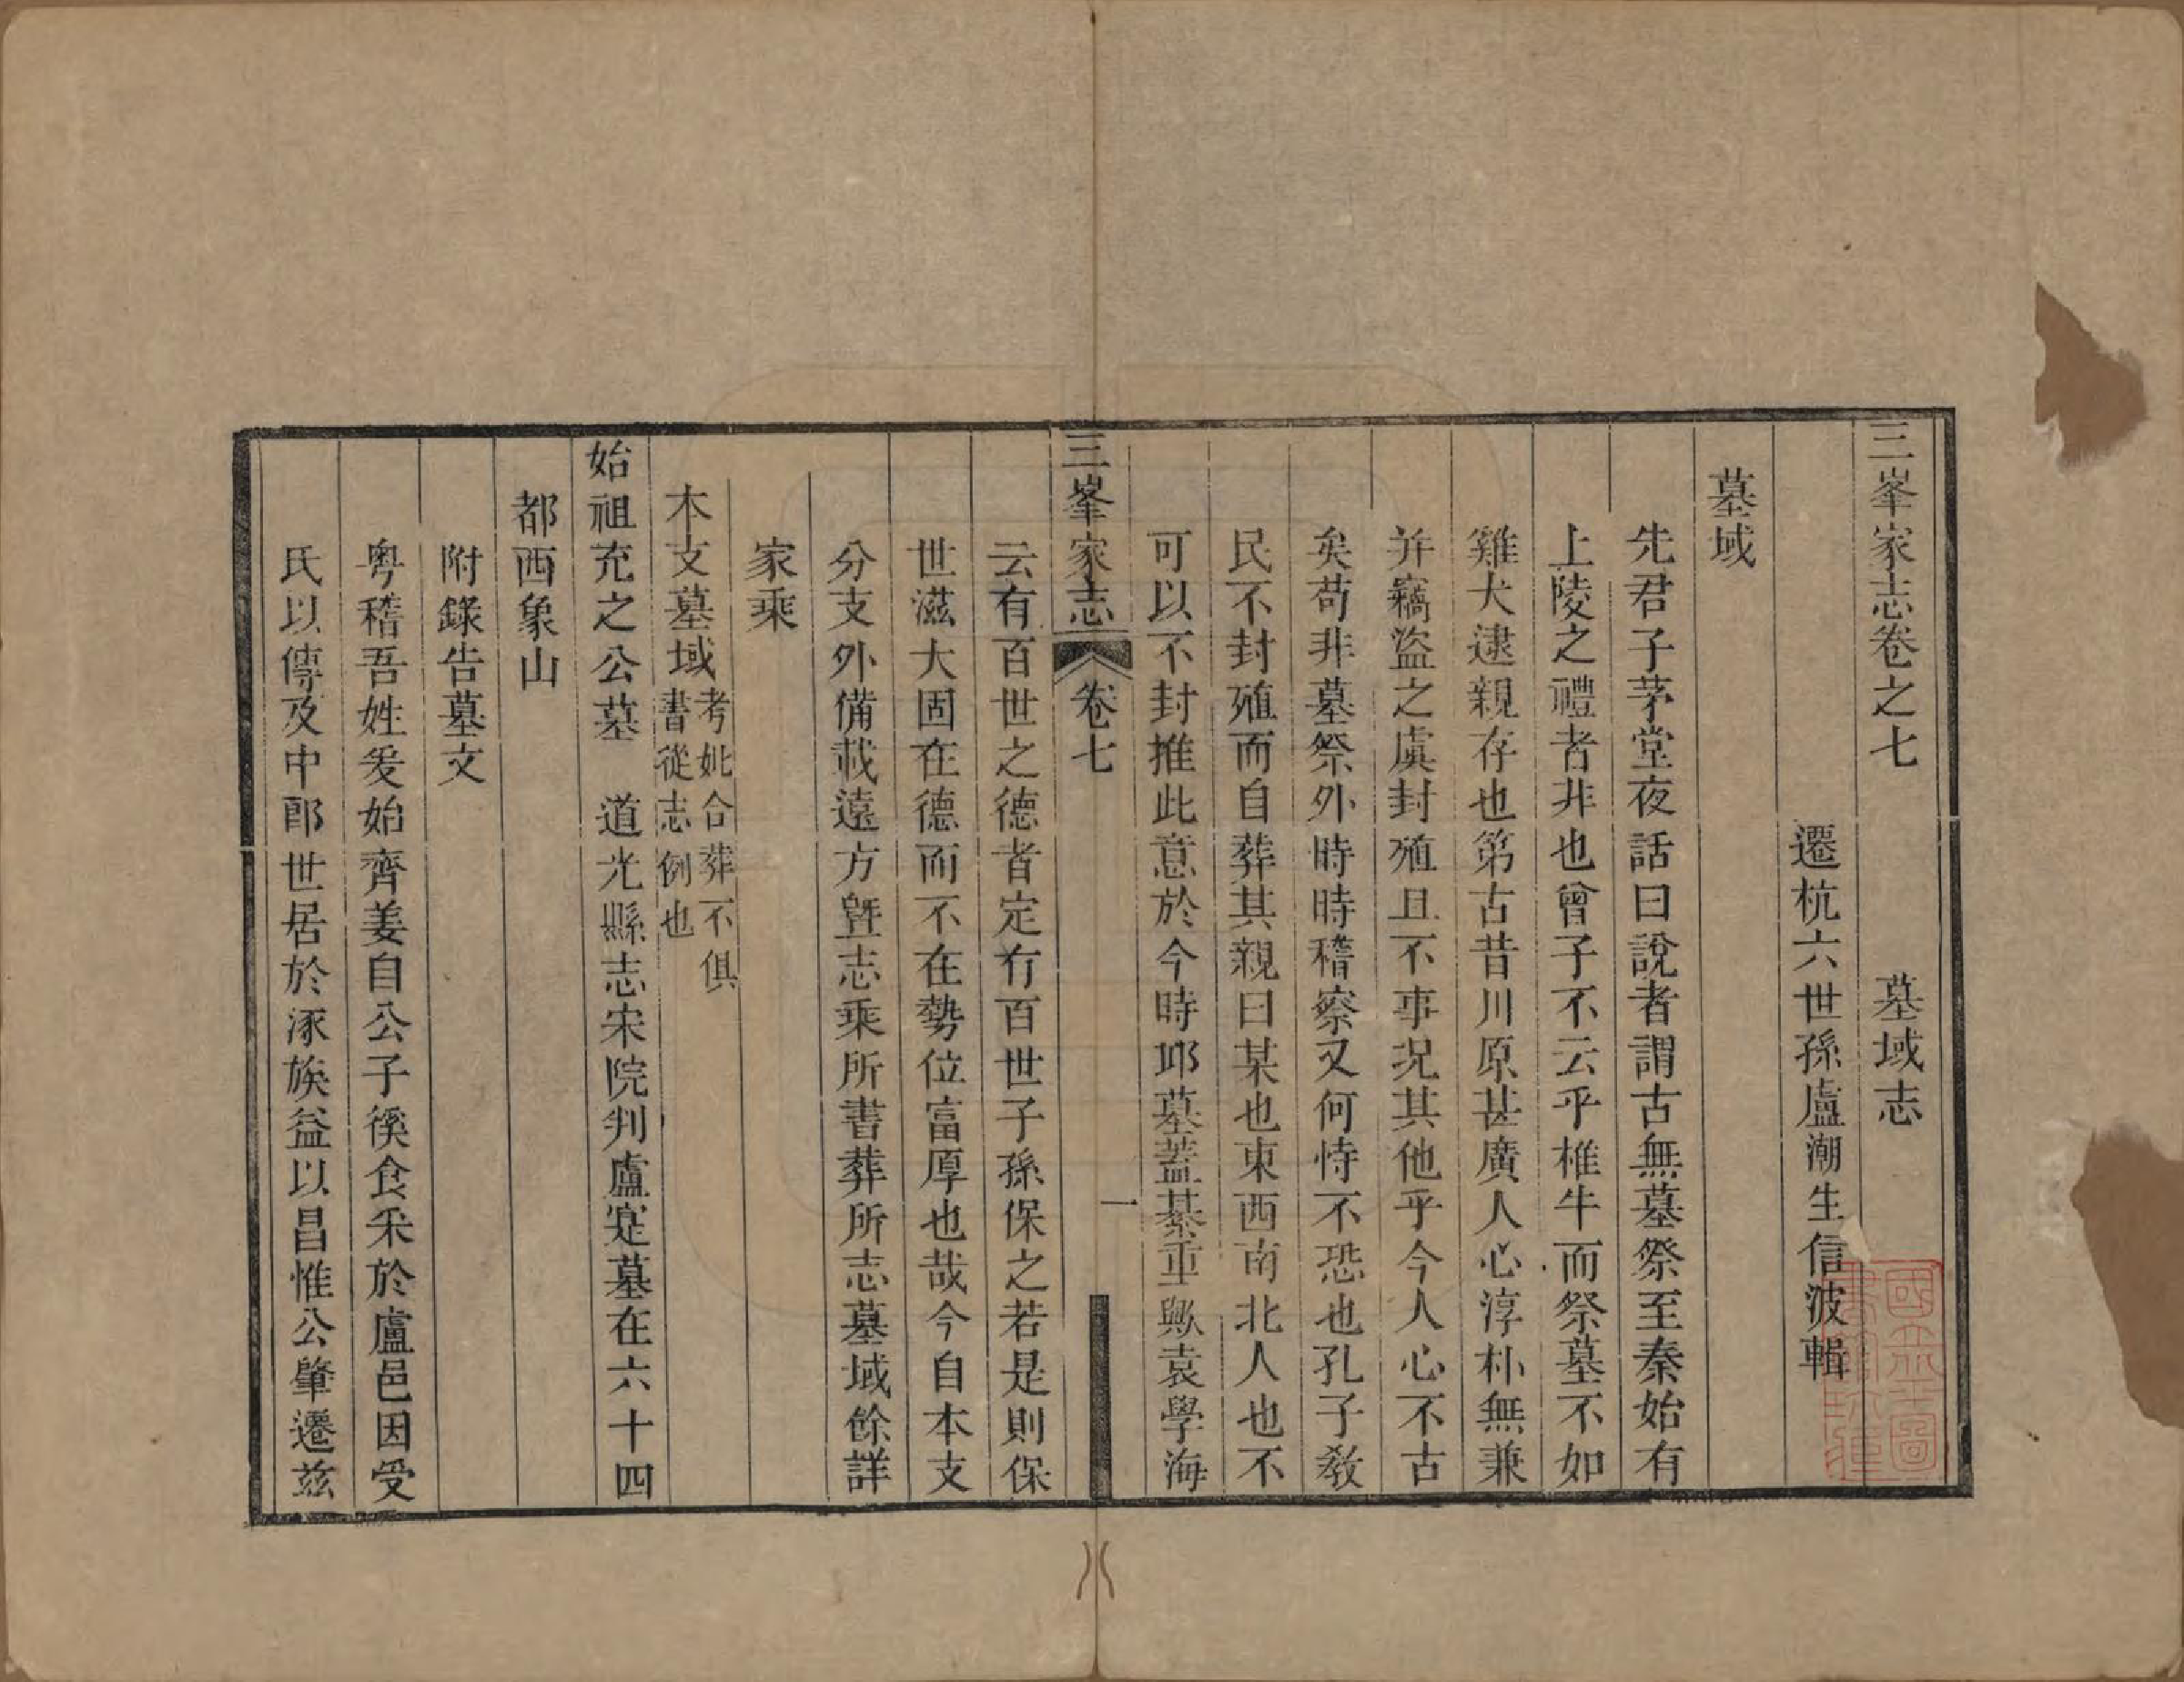 三峯家志卷之七　墓域志
遷杭六世孫盧潮生信波輯
墓域
先君子茅堂夜話曰說者謂古無墓祭至秦始有
上陵之禮者非也曾子不云乎椎牛而祭墓不如
雞犬逮親存也第古昔川原甚廣人心淳朴無兼
并竊盜之虞封殖且不事况其他乎今人心不古
矣苟非墓祭外時時稽察又何恃不恐也孔子敎
民不封殖而自葬其親曰某也東西南北人也不
可以不封推此意於今時邱墓蓋綦重歟袁學海
三峯家志　卷七　一
云有百世之德者定有百世子孫保之若是則保
世滋大固在德而不在勢位富厚也哉今自本支
分支外備載遠方曁志乘所書葬所志墓域餘詳
家乘
木支墓域考妣合葬不俱
書從志例也
始祖充之公墓　道光縣志宋院判盧寔墓在六十四
都西象山
附錄告墓文
粵稽吾姓爰始齊姜自公子徯食采於盧邑因受
氏以傳及中郎世居於涿族益以昌惟公肇遷玆